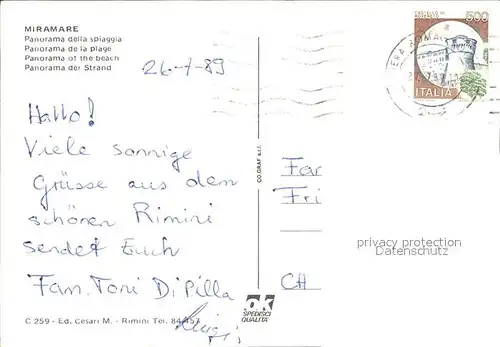 MIRAMARE
Panorama della spiaggia
Panorama de la plage
Panorama of the beach
Panorama der Strand
26-7-89
Hallo!
Viele sonnige
Grüsse aus dem
schönen Rimini
sendet Euch
Fam. Toni Di Pilla
Luigi
C 259 - Ed. Cesari M. - Rimini Tel. 84457
CO.GRAF s.r.l.
ok
SPEDISCI
QUALITÀ
500
ITALIA
Fam
Fri
CH
privacy protection
Datenschutz